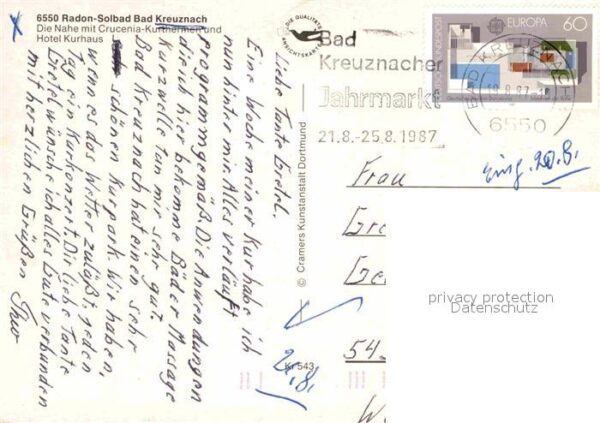 6550 Radon-Solbad Bad Kreuznach
Die Nahe mit Crucenia-Kurthermen und
Hotel Kurhaus
Liebe Tante Gretel.
Eine Woche meiner Kur habe ich
nun hinter mir. Alles verläuft
programmgemäß. Die Anwendungen
die ich hier bekomme Bäder Massage
Kurzwelle tun mir sehr gut.
Bad Kreuznach hat einen sehr
schönen Kurpark. Wir haben,
wenn es das Wetter zuläßt jeden
Tag ein Kurkonzert. Dir liebe Tante
Gretel wünsche ich alles Gute verbunden
mit herzlichen Grüßen
DIE QUALITÄTS
ANSICHTSKARTE
© Cramers Kunstanstalt Dortmund
Kr 543
Bad
Kreuznacher
Jahrmarkt
21.8.-25.8.1987
EUROPA 60
DEUTSCHE BUNDESPOST
6550
Eing. 20.8.
Frau
Gre
Ge
54
W
privacy protection
Datenschutz